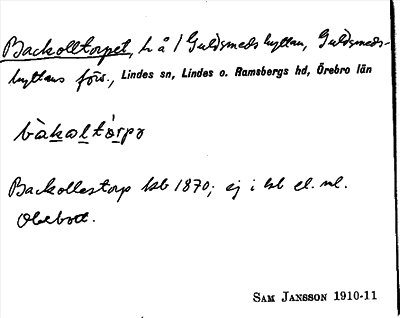 Backolltorpet, h å / Guldsmedshyttan, Guldsmeds-
hyttans förs., Lindes sn, Lindes o. Ramsbergs hd, Örebro län
bàkoltórpə
Backollestorp hsb 1870; ej i hl el. ml.
Obebott.
SAM JANSSON 1910-11